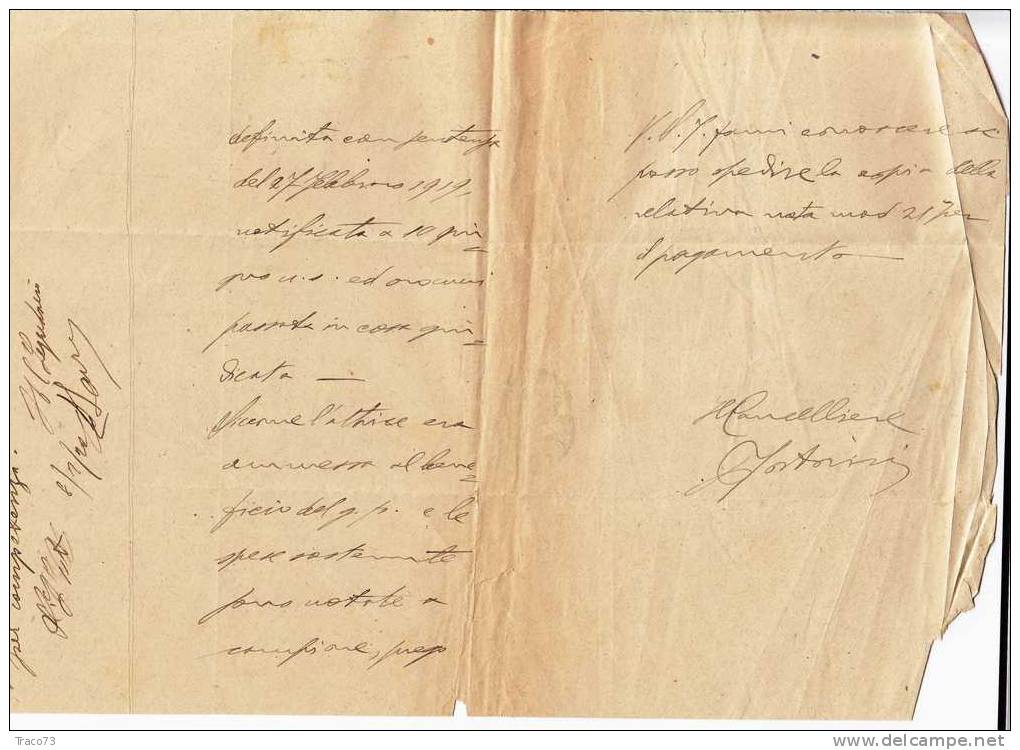 definita con sentenza
del 27 febbraio 1919,
notificata a 10 giu=
gno u.s. ed oramai
passata in cosa giu=
dicata —
Siccome l'attrice era
ammessa al bene=
ficio del g. p. e le
spese sostenute
sono notate a
campione, prego
V. S. I. farmi conoscere se
posso spedire la copia della
relativa nota mod 21 per
il pagamento —
Il Cancelliere
per competenza.
Il Segretario
Traco73
www.delcampe.net